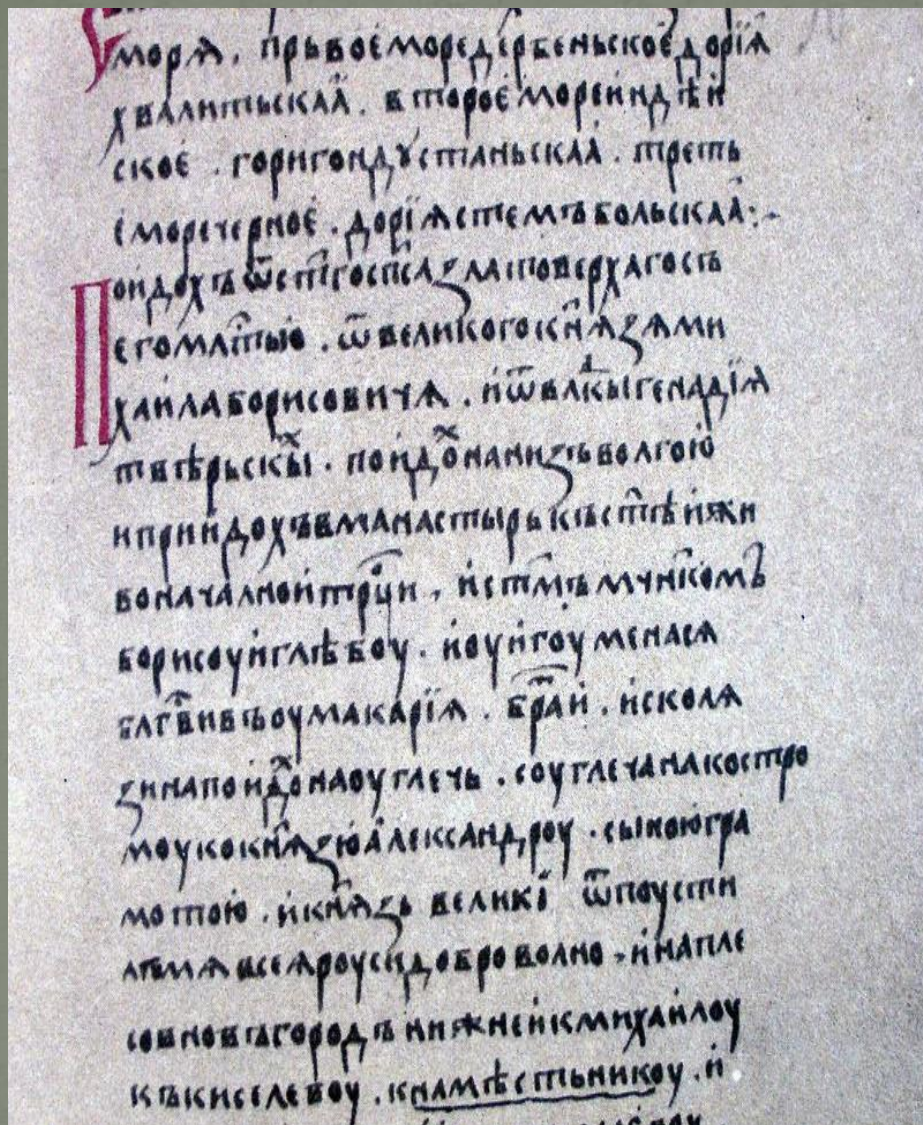 морѧ. прьвое море дербеньское дорїа
хвалитьскаа. второе море индѣи
ское. гори гондꙋстаньскаа. треть
е море черное. дорїа стемъбольскаа:
Поидохъ ѿ ст҃го сп҃са златоверхаго съ
его млⷭ҇тїю. ѿ великого кн҃ѧзѧ ми
хаила борисовичѧ. и ѿ влⷣкы генадїѧ
твѣрьскыⷯ. поидоⷯ на низъ волгою
и приидохъ в манастырь къ ст҃ѣи жи
воначалнои трⷪ҇ци. и ст҃мъ мчн҃комъ
борисоу и глѣбоу. и оу игоумена сѧ
блгⷭ҇вивъ оу макарїѧ. братⷭ҇и. и с колѧ
зина поидоⷯ на оуглечь. с оуглеча на костро
моу ко кн҃ѧзю александроу. с ыною гра
мотою. и кн҃ѧзь великї ѿпоусти
лъ мѧ всеѧ роуси доброволно. и на пле
со в новъгородъ нижнеи к михаилоу
къ киселевоу. к намѣстьникоу. и